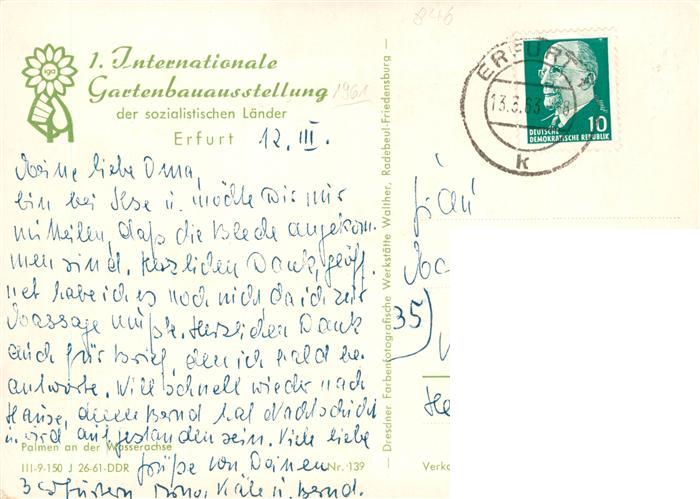 846
iga
1. Internationale
Gartenbauausstellung 1961
der sozialistischen Länder
Erfurt
12. III.
Meine liebe Oma,
bin bei Ilse u. möchte Dir nur
mitteilen, daß die Blede angekom-
men sind. Herzlichen Dank, geöff-
net habe ich es noch nicht da ich zur
Massage mußte. Herzlichen Dank
auch für Brief, den ich bald be-
antworte. Will schnell wieder nach
Hause, denn Bernd hat Nachtschicht
u. wird aufgestanden sein. Viele liebe
Grüße von Deinen
3 Erfurtern Käte u. Bernd.
Palmen an der Wasserachse
III-9-150 J 26-61-DDR
Nr. 139
Dresdner Farbenfotografische Werkstätte Walther, Radebeul-Friedensburg
ERFURT
13.3.63
k
DEUTSCHE
DEMOKRATISCHE REPUBLIK
10
Frau
35)
Verka